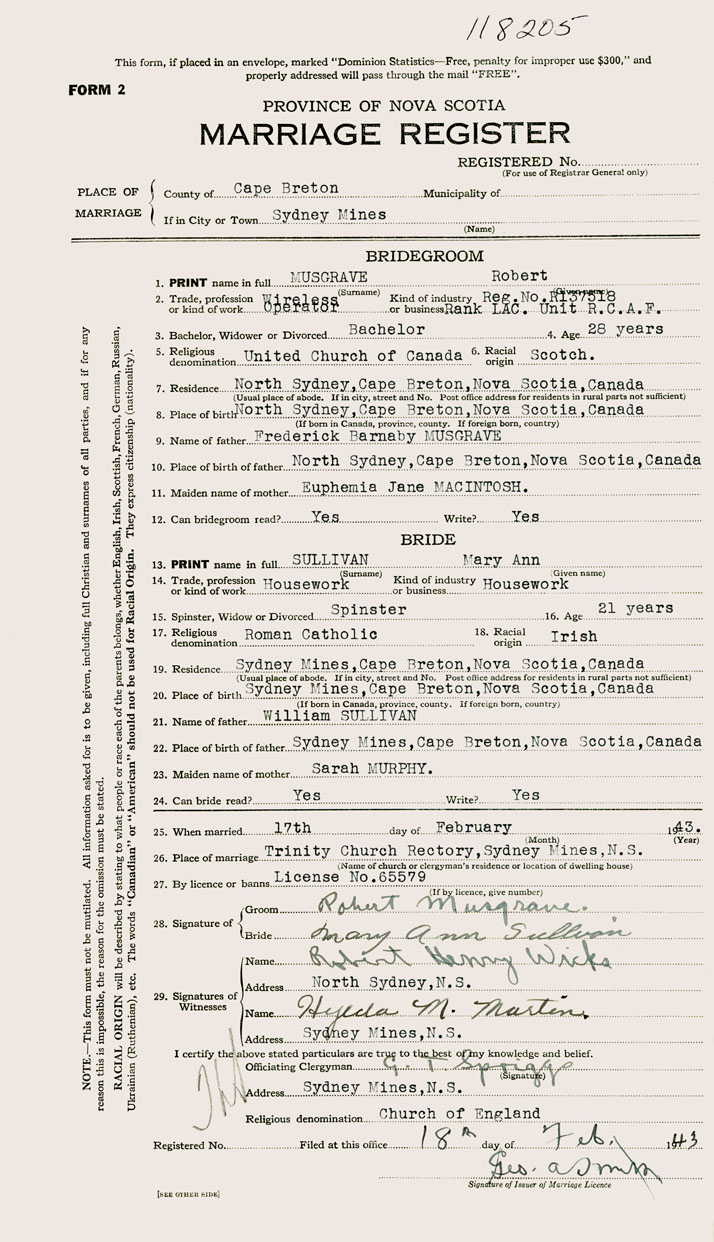 118205
This form, if placed in an envelope, marked “Dominion Statistics—Free, penalty for improper use $300,” and
properly addressed will pass through the mail “FREE”.
FORM 2
PROVINCE OF NOVA SCOTIA
MARRIAGE REGISTER
REGISTERED No.
(For use of Registrar General only)
PLACE OF MARRIAGE
County of Cape Breton Municipality of
If in City or Town Sydney Mines
(Name)
BRIDEGROOM
1. PRINT name in full MUSGRAVE Robert
(Surname) (Given name)
2. Trade, profession or kind of work Wireless Operator Kind of industry or business Reg.No.R137518 Rank LAC. Unit R.C.A.F.
3. Bachelor, Widower or Divorced Bachelor 4. Age 28 years
5. Religious denomination United Church of Canada 6. Racial origin Scotch.
7. Residence North Sydney,Cape Breton,Nova Scotia,Canada
(Usual place of abode. If in city, street and No. Post office address for residents in rural parts not sufficient)
8. Place of birth North Sydney,Cape Breton,Nova Scotia,Canada
(If born in Canada, province, county. If foreign born, country)
9. Name of father Frederick Barnaby MUSGRAVE
10. Place of birth of father North Sydney,Cape Breton,Nova Scotia,Canada
11. Maiden name of mother Euphemia Jane MACINTOSH.
12. Can bridegroom read? Yes Write? Yes
BRIDE
13. PRINT name in full SULLIVAN Mary Ann
(Surname) (Given name)
14. Trade, profession or kind of work Housework Kind of industry or business Housework
15. Spinster, Widow or Divorced Spinster 16. Age 21 years
17. Religious denomination Roman Catholic 18. Racial origin Irish
19. Residence Sydney Mines,Cape Breton,Nova Scotia,Canada
(Usual place of abode. If in city, street and No. Post office address for residents in rural parts not sufficient)
20. Place of birth Sydney Mines,Cape Breton,Nova Scotia,Canada
(If born in Canada, province, county. If foreign born, country)
21. Name of father William SULLIVAN
22. Place of birth of father Sydney Mines,Cape Breton,Nova Scotia,Canada
23. Maiden name of mother Sarah MURPHY.
24. Can bride read? Yes Write? Yes
25. When married 17th day of February 1943.
(Month) (Year)
26. Place of marriage Trinity Church Rectory,Sydney Mines,N.S.
(Name of church or clergyman's residence or location of dwelling house)
27. By licence or banns License No.65579
(If by licence, give number)
28. Signature of
Groom Robert Musgrave.
Bride Mary Ann Sullivan
29. Signatures of Witnesses
Name Robert Henry Wicks
Address North Sydney,N.S.
Name Hylda M. Martin.
Address Sydney Mines,N.S.
I certify the above stated particulars are true to the best of my knowledge and belief.
Officiating Clergyman G. T. Spriggs
(Signature)
Address Sydney Mines,N.S.
Religious denomination Church of England
Registered No. Filed at this office 18th day of Feb. 1943
Geo. a Smith
Signature of Issuer of Marriage Licence
[SEE OTHER SIDE]
NOTE.—This form must not be mutilated. All information asked for is to be given, including full Christian and surnames of all parties, and if for any
reason this is impossible, the reason for the omission must be stated.
RACIAL ORIGIN will be described by stating to what people or race each of the parents belongs, whether English, Irish, Scottish, French, German, Russian,
Ukrainian (Ruthenian), etc. The words “Canadian” or “American” should not be used for Racial Origin. They express citizenship (nationality).